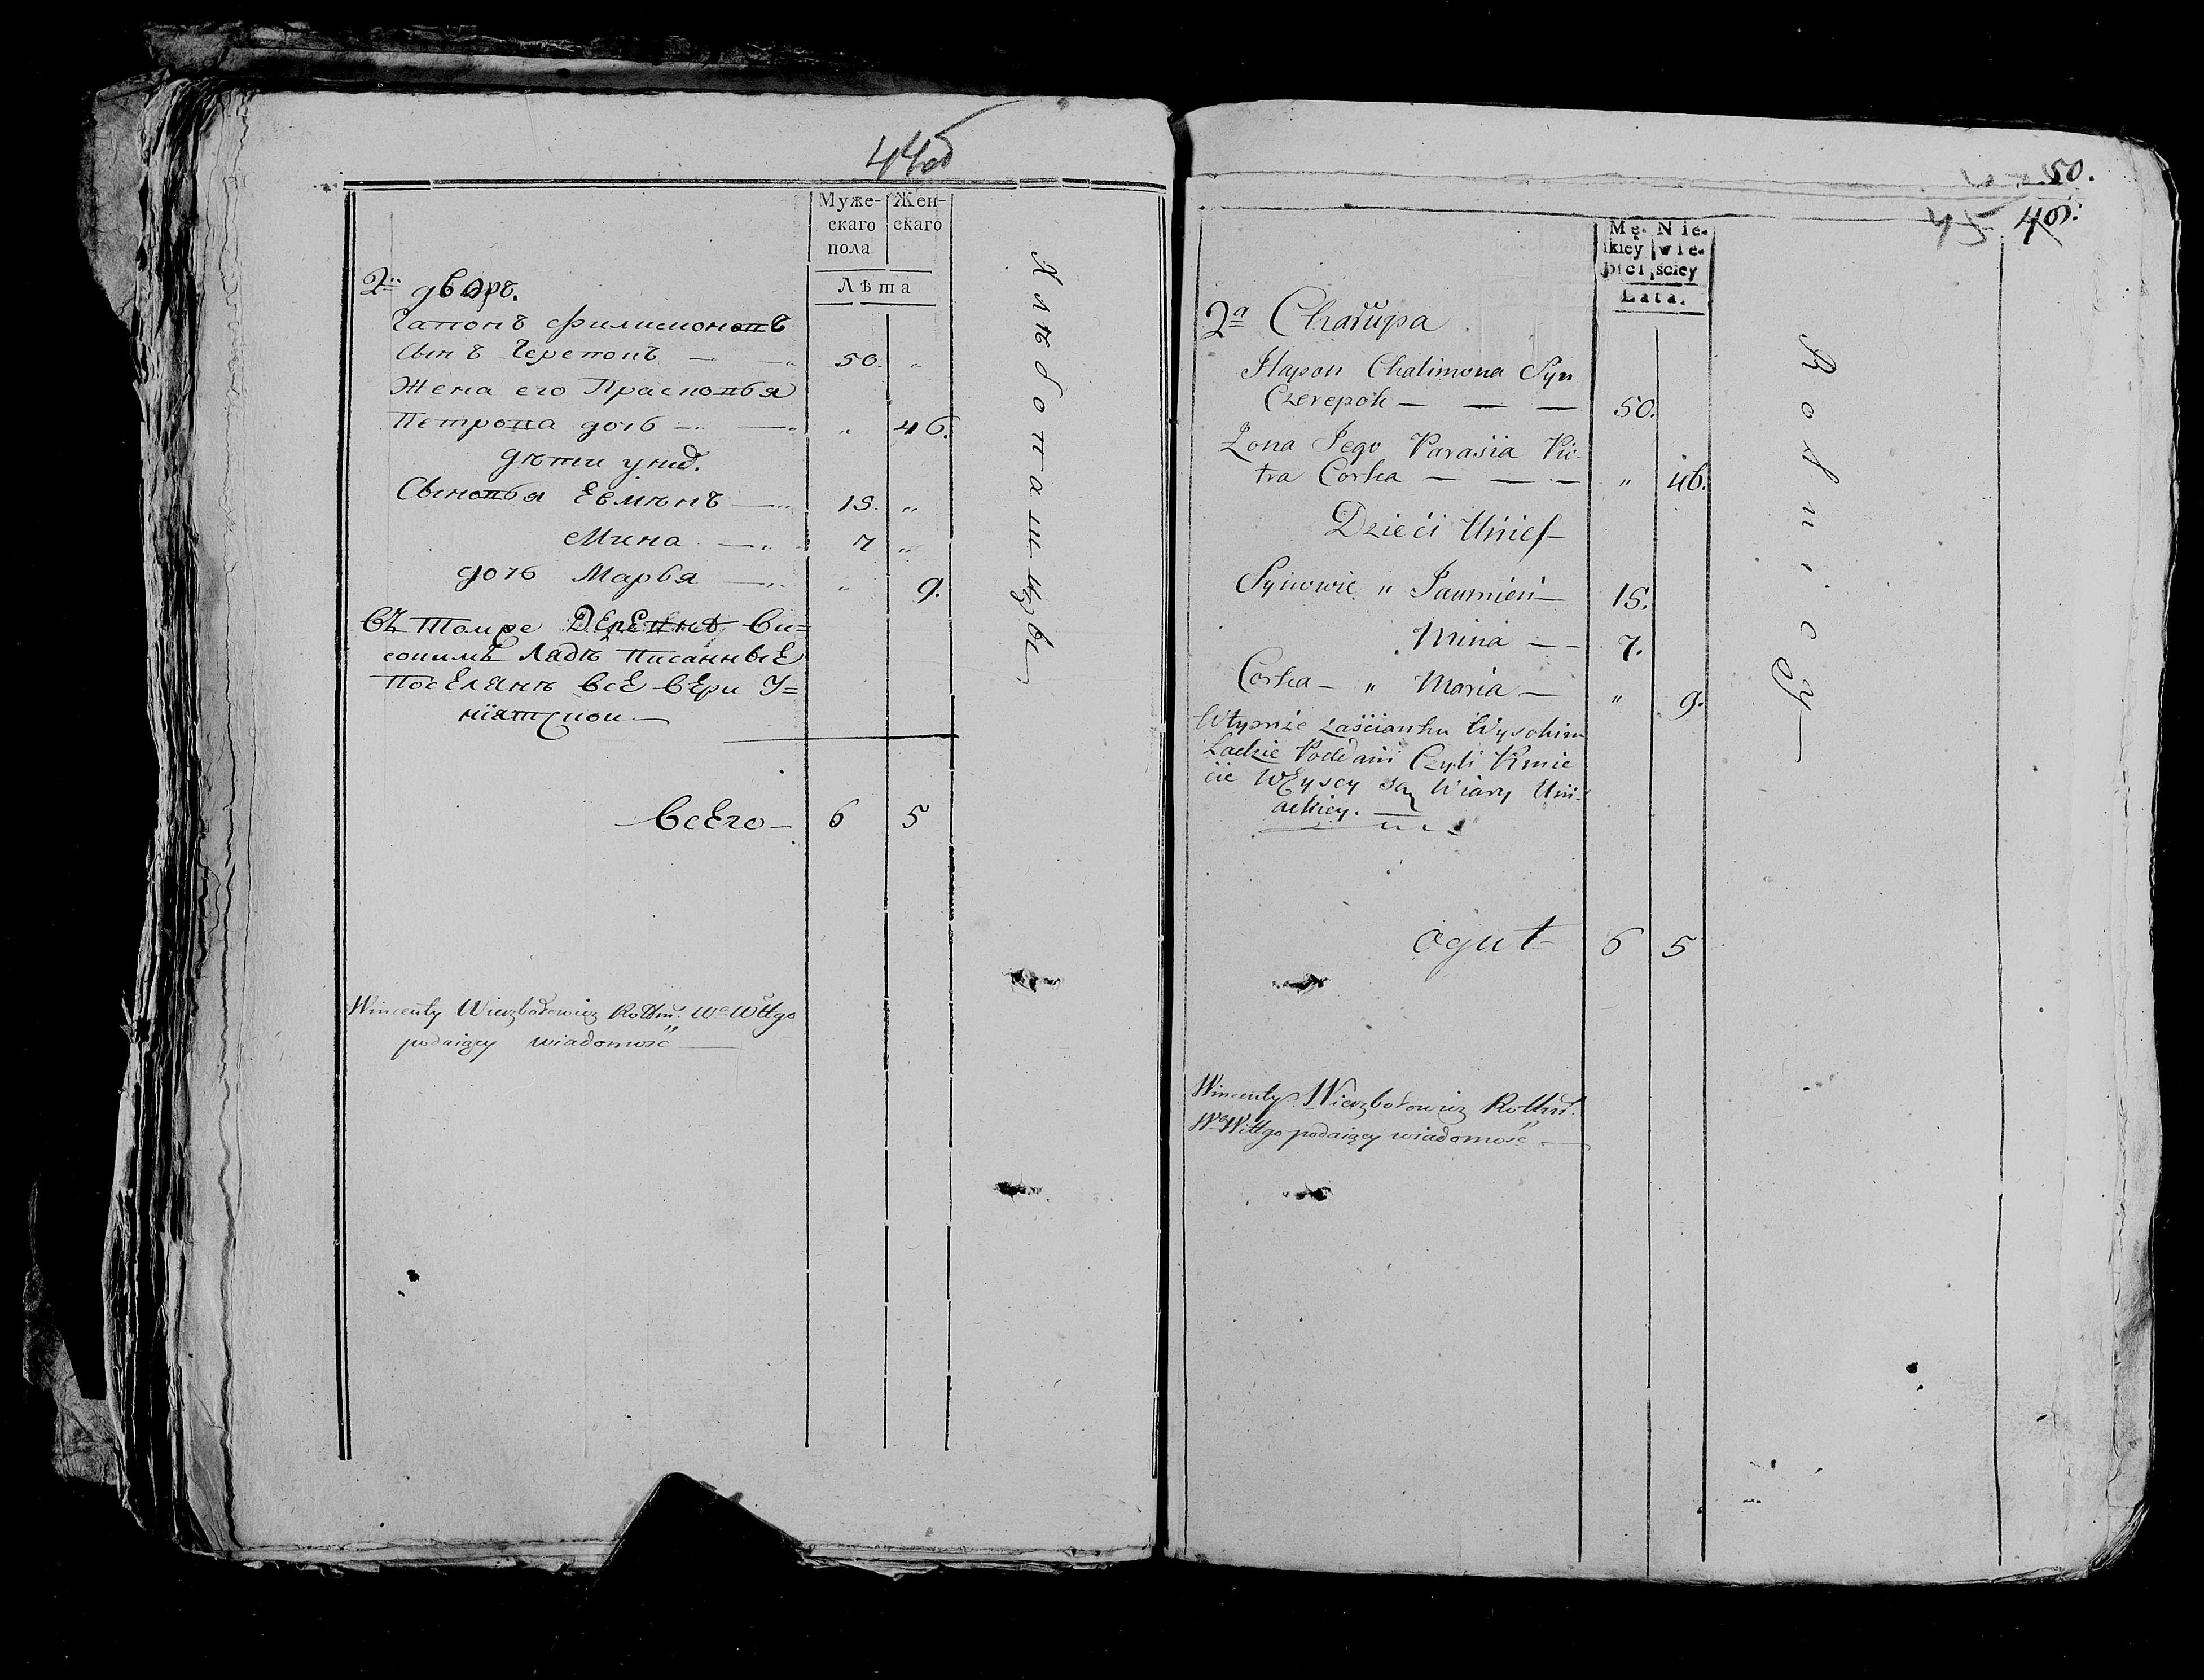 44об
Муже- Жен-
скаго скаго
пола
Лѣта
2й дворъ.
Гапонъ Филимоновъ
Сынъ Черепокъ — — 50. „
Жена его Прасковья
Петрова дочь — — „ 46.
дѣти унид.
Сыновья Евмѣнъ — 15. „
Мина — 7 „
дочь Марья — „ 9.
Въ томже Деревнѣ Ви=
сокимъ Ладѣ Писанные
Поселянѣ все Вери У=
ніятской —
Всего — 6 5
Хлѣбопашцы
Wincenty Wierzbołowicz Rottm: Wa Wttgo
podaiący wiadomość —
50.
45 46.
Mę- Nie-
skiey wie-
płci ściey
Lata.
2a Chałupa
Hapon Chalimona Syn
Czerepok — — — 50.
Zona Jego Parasia Pio-
tra Corka — — — „ 46.
Dzieci Unich
Synowie „ Jaumień — 15.
Mina — — 7.
Corka — „ Maria — „ 9.
Wtymże Zaścianku Wysokim
Ladzie Poddani Czyli Kmie
cie Wszyscy są Wiary Uni-
ackiey. —
oguł 6 5
Rolnicy
Wincenty Wierzbołowicz Rottm:
Wa Wittgo podaiący wiadomość —